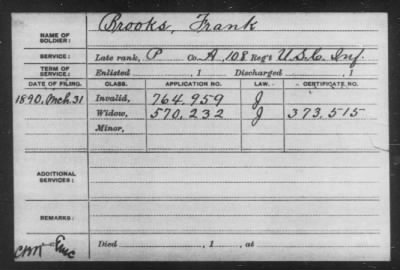 Brooks, Frank
NAME OF SOLDIER:
SERVICE: Late rank, P Co. A, 108 Reg't U.S.C. Inf.
TERM OF SERVICE: Enlisted , 1 Discharged , 1
DATE OF FILING. CLASS. APPLICATION NO. LAW. CERTIFICATE NO.
1890, Mch. 31 Invalid, 764,959 J
Widow, 570,232 J 373,515
Minor,
ADDITIONAL SERVICES:
REMARKS:
Died , 1 , at